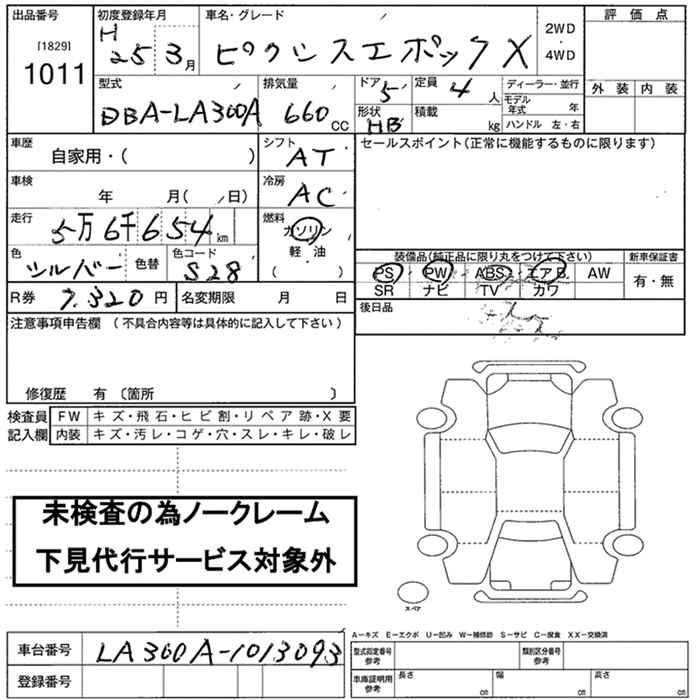 出品番号 初度登録年月 車名・グレード 評価点
[1829]
1011
H 25 3月 ピクシスエポック X 2WD・4WD
型式 排気量 ドア 5 定員 4人 ディーラー・並行 外装 内装
DBA-LA300A 660cc 形状 HB 積載 kg モデル年式 年
ハンドル 左・右
車歴 シフト セールスポイント(正常に機能するものに限ります)
自家用・( ) AT
車検 冷房
年 月( 日) AC
走行 燃料
5万6千654km ガソリン
軽油
( )
色 色替 色コード
シルバー S28
装備品(純正品に限り丸をつけて下さい) 新車保証書
PS PW ABS エアB AW 有・無
SR ナビ TV カワ
R券 7,320円 名変期限 月 日
後日品
注意事項申告欄 (不具合内容等は具体的に記入して下さい)
修復歴 有 〔箇所 〕
検査員 FW キズ・飛石・ヒビ割・リペア跡・X要
記入欄 内装 キズ・汚レ・コゲ・穴・スレ・キレ・破レ
未検査の為ノークレーム
下見代行サービス対象外
スペア
A-キズ E-エクボ U-凹み W-補修跡 S-サビ C-腐食 XX-交換済
車台番号 LA300A-1013093
登録番号
型式指定番号 参考 類別区分番号 参考
車庫証明用 参考 長さ cm 幅 cm 高さ cm